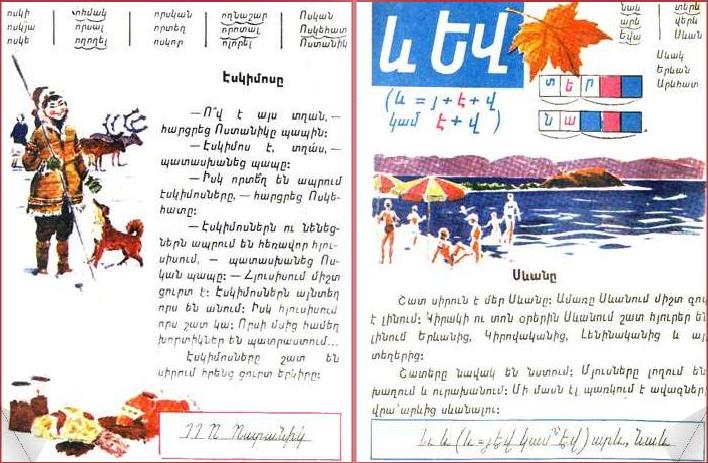 ոսկի որսկան ողնաշար Ոսկան
ոսկյա որսալ որտեղ որոտալ Ոսկեհատ
ոսկե ողողել ոսկոր ոլորել Ոստանիկ
Էսկիմոսը
— Ո՞վ է այս տղան, —
հարցրեց Ոստանիկը պապին։
— Էսկիմոս է, տղա՛ս, —
պատասխանեց պապը։
— Իսկ որտե՞ղ են ապրում
էսկիմոսները, — հարցրեց Ոսկե-
հատը։
— Էսկիմոսներն ու նենեց-
ներն ապրում են հեռավոր հյու-
սիսում, — պատասխանեց Ոս-
կան պապը։ — Հյուսիսում միշտ
ցուրտ է։ Էսկիմոսներն այնտեղ
որս են անում։ Իսկ հյուսիսում
որս շատ կա։ Որսի մսից համեղ
խորտիկներ են պատրաստում...
Էսկիմոսները շատ են
սիրում իրենց ցուրտ երկիրը։
Ո Ոստանիկ
նաև տերև
արև վերև
Եվա Սևան
Սևակ
Երևան
Արևհատ
և ԵՎ
(և = յ+է+վ
կամ է+վ )
տ ե ր
ն ա
Սևանը
Շատ սիրուն է մեր Սևանը։ Ամառը Սևանում միշտ զով
է լինում։ Կիրակի ու տոն օրերին Սևանում շատ հյուրեր են
լինում Երևանից, Կիրովականից, Լենինականից և այլ
տեղերից։
Շատերը նավակ են նստում։ Մյուսները լողում են,
խաղում և ուրախանում։ Մի մասն էլ պառկում է ավազների
վրա՝ արևից սևանալու։
և և (և=յէվ կամ էվ) արև, նաև